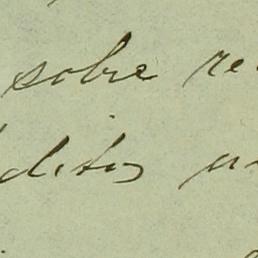 sobre re
ditos